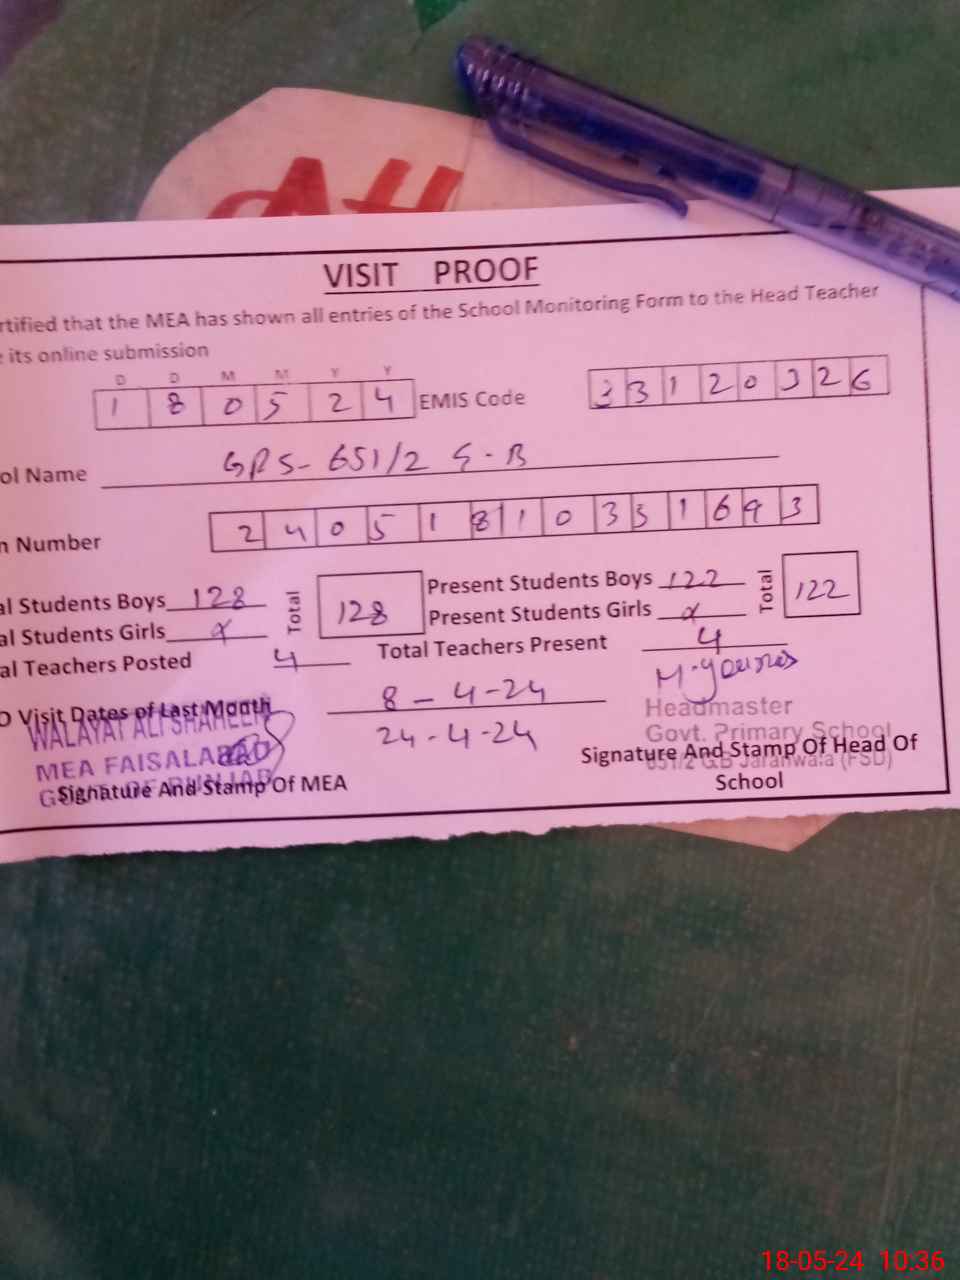 AH
VISIT PROOF
rtified that the MEA has shown all entries of the School Monitoring Form to the Head Teacher
e its online submission
D D M M Y Y
1 8 0 5 2 4 EMIS Code 3 3 1 2 0 3 2 6
ol Name GPS- 651/2 G-B
n Number 2 4 0 5 1 8 1 0 3 5 1 6 9 3
al Students Boys 128 Total 128 Present Students Boys 122 Total 122
al Students Girls x Present Students Girls x
al Teachers Posted 4 Total Teachers Present 4
M. younes
O Visit Dates of Last Month 8-4-24
24-4-24
WALAYAT ALI SHAHEEN
MEA FAISALABAD
GOVT OF PUNJAB
Signature And Stamp Of MEA
Headmaster
Govt. Primary School
651/2 G.B Jaranwala (FSD)
Signature And Stamp Of Head Of
School
18-05-24 10:36